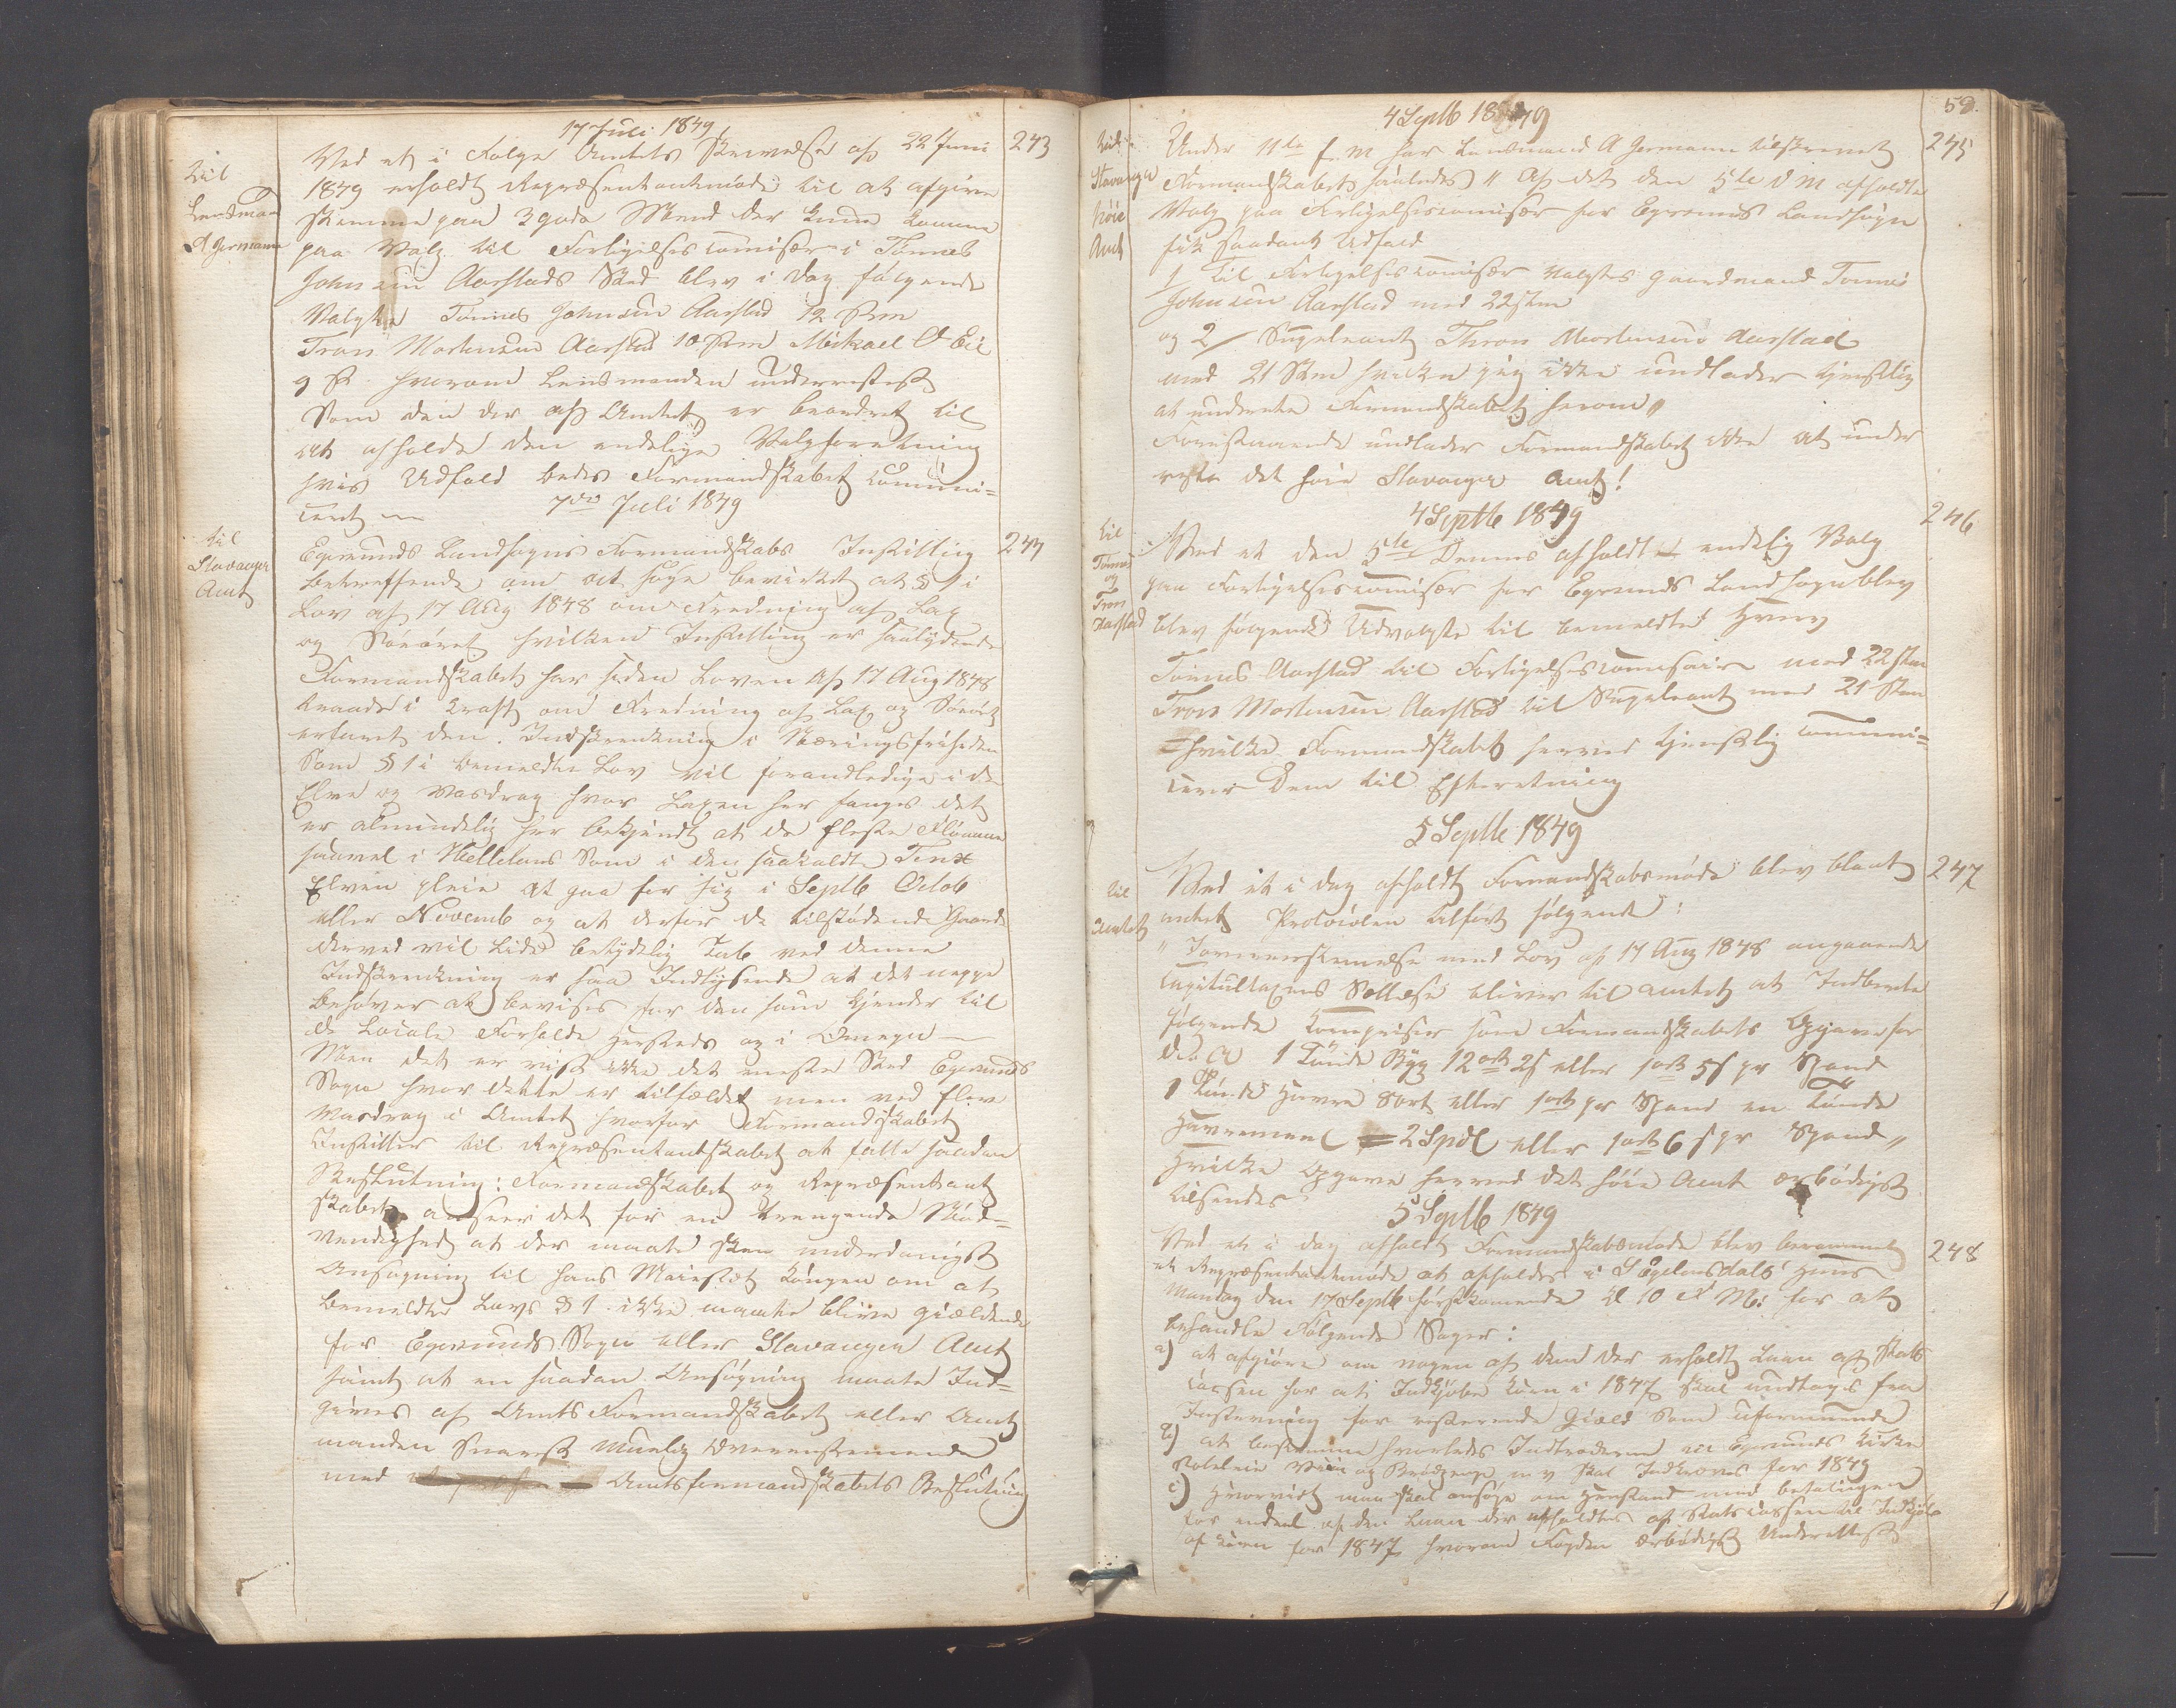 17 Juli 1849
243
til
Lensmand
A Gjermann
Ved et i Følge Amtets Skrivelse af 22 Juni
1849 erholdt Repræsentantmøde til at afgive
Stemme paa 3 gode Mænd der kunde komme
paa Valg til Forligelseskomisær i Tønnes
Johnsen Aarstads Sted blev i Dag følgende
Valgte Tønnes Johnsen Aarstad 12 Stm
Tron Mortensen Aarstad 10 Stm Mikael O Eie
9 St. hvorom Lensmanden underrettes
Som den der af Amtet er beordret til
at afholde den endelige Valgforretning
hvis Udfald bedes Formandskabet communi=
ceret
7de Juli 1849
244
til
Stavanger
Amt
Egersunds Landsogns Formandskabs Instilling
betreffende om at søge bevirket at § 1 i
Lov af 17 Aug 1848 om Fredning af Lax
og Søørret hvilken Instilling er saalydende
Formandskabet har siden Loven af 17 Aug 1848
traadte i Kraft om Fredning af Lax og Søørret
erfaret den Indskrenkning i Næringsfriheden
Som § 1 i bemeldte Lov vil foranledige i de
Elve og Vasdrag hvor Laxen her fanges det
er almindelig her bekjendt at de fleste Flomme
saavel i Hellelans Som i den saakaldte Tenx
Elven pleie at gaa for sig i Septb Octob
eller Novemb og at derfor de tilstødende Gaarde
derved vil lide betydelig Tab ved denne
Indskrenkning er saa Indlysende at det neppe
behøver at bevises for den som kjender til
de Locale Forholde hersteds og i Omegn
Men det er vist ikke det eneste Sted Egersunds
Sogn hvor dette er tilfældet men ved flere
Vasdrag i Amtet hvorfor Formandskabet
Instiller til Repræsentantskabet at fatte saadan
Beslutning: Formandskabet og Repræsentant
skabet anseer det for en trengende Nød=
vendighed at der maate skee underdanigst
Ansøgning til hans Maiestet Kongen om at
bemeldte Lovs § 1 ikke maate blive gieldende
for Egersunds Sogn eller Stavanger Amt
samt at en saadan Ansøgning maate Ind=
gives af Amts Formandskabet eller Amt
manden Snarest muelig Overenstemmende
med Amtsformandskabets Beslutning
59.
4 Septb 1849
245
til
Stavanger
høie
Amt
Under 11te f. M har Lensmand A Gjermann tilskrevet
Formandskabet saaledes "Af det den 5te d M afholdte
Valg paa Forligelsescomisær for Egersunds Landsogn
fik saadant Udfald
1 Til Forligelsescomisær valgtes Gaardmand Tønnes
Johnsen Aarstad med 22 Stm
og 2/ Supleant Thron Mortensens Aarstad
med 21 Stm hvilket jeg ikke undlader tjenstlig
at underrette Formandskabet herom"
Forestaaende undlader Formandskabet ikke at under
rette det høie Stavanger Amt!
4 Septb 1849
246
til
Tønnes
og
Tron
Aarstad
Ved et den 5te Dennes afholdt endelig Valg
paa Forligelsescomisær for Egersunds Landsogn blev
blev følgende Udvalgte til bemeldte Hverv
Tønnes Aarstad til Forligelsescommisair med 22 Stm
Tron Mortensen Aarstad til Supleant med 21 Stm
hvilke Formandskabet herved tjenstlig communi=
cerer Dem til Efterretning
5 Septb 1849
247
til
Amtet
Ved et i Dag afholdt Formandskabsmøde blev blant
andet Protocolen tilført følgende:
" I Overenstemmelse med Lov af 17 Aug 1848 angaaende
Capitultaxens Sættelse bliver til Amtet at Indberette
følgende Kornpriser som Formandskabets Opgave for
d. A 1 Tønde Byg 12 ort 2 s eller 1 ort 5 s pr Spand
1 Tønde Havre 8 ort eller 1 ort pr Spand en Tønde
Havremeel = 2 Spdl eller 1 ort 6 s pr Spand"
Hvilke Opgave herved det høie Amt ærbødigst
tilsendes
5 Septb 1849
248
Ved et i Dag afholdt Formandskabsmøde blev berammet
et Repræsentantmøde at afholdes i S Egelandsdals Huus
Mantag den 17 Septb førstkomende Kl 10 F M: for at
behandle Følgende Sager:
a) at afgiøre om nogen af dem der erholdt Laan af Stats
Cassen for at Indkjøbe Korn i 1847 skal undtages fra
Inkrevning for resterende Gield Som uformuende
b) at bestemme hvorledes Indtrederne til Egersunds Kirke
Stoleleie Viin og Brødpenge m v skal Indkræves for 1849
c) Hvorvidt man skal ansøge om Henstand med betalingen
for endeel af den Laan der erholdtes af Statscassen til Indkjøb
af Korn for 1847 hvorom Fogden ærbødigst Underettes